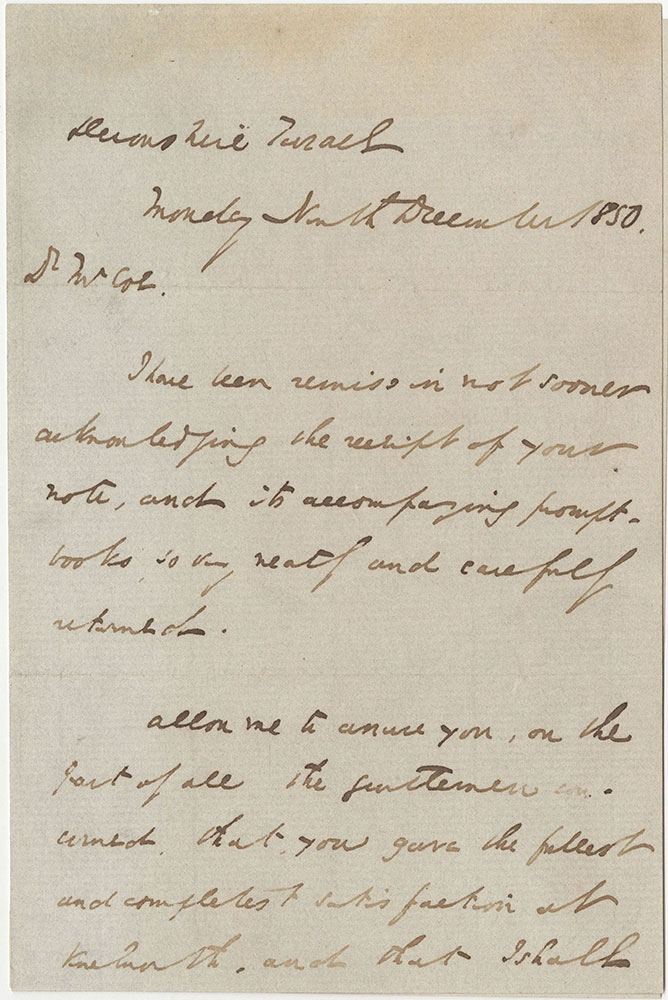 Devonshire Terrace
Monday Ninth December 1850.
Dr Mr Coe.
I have been remiss in not sooner
acknowledging the receipt of your
note, and its accompanying prompt-
books, so very neatly and carefully
returned.
Allow me to assure you, on the
part of all the gentlemen con-
cerned, that you gave the fullest
and completest satisfaction at
Knebworth, and that I shall